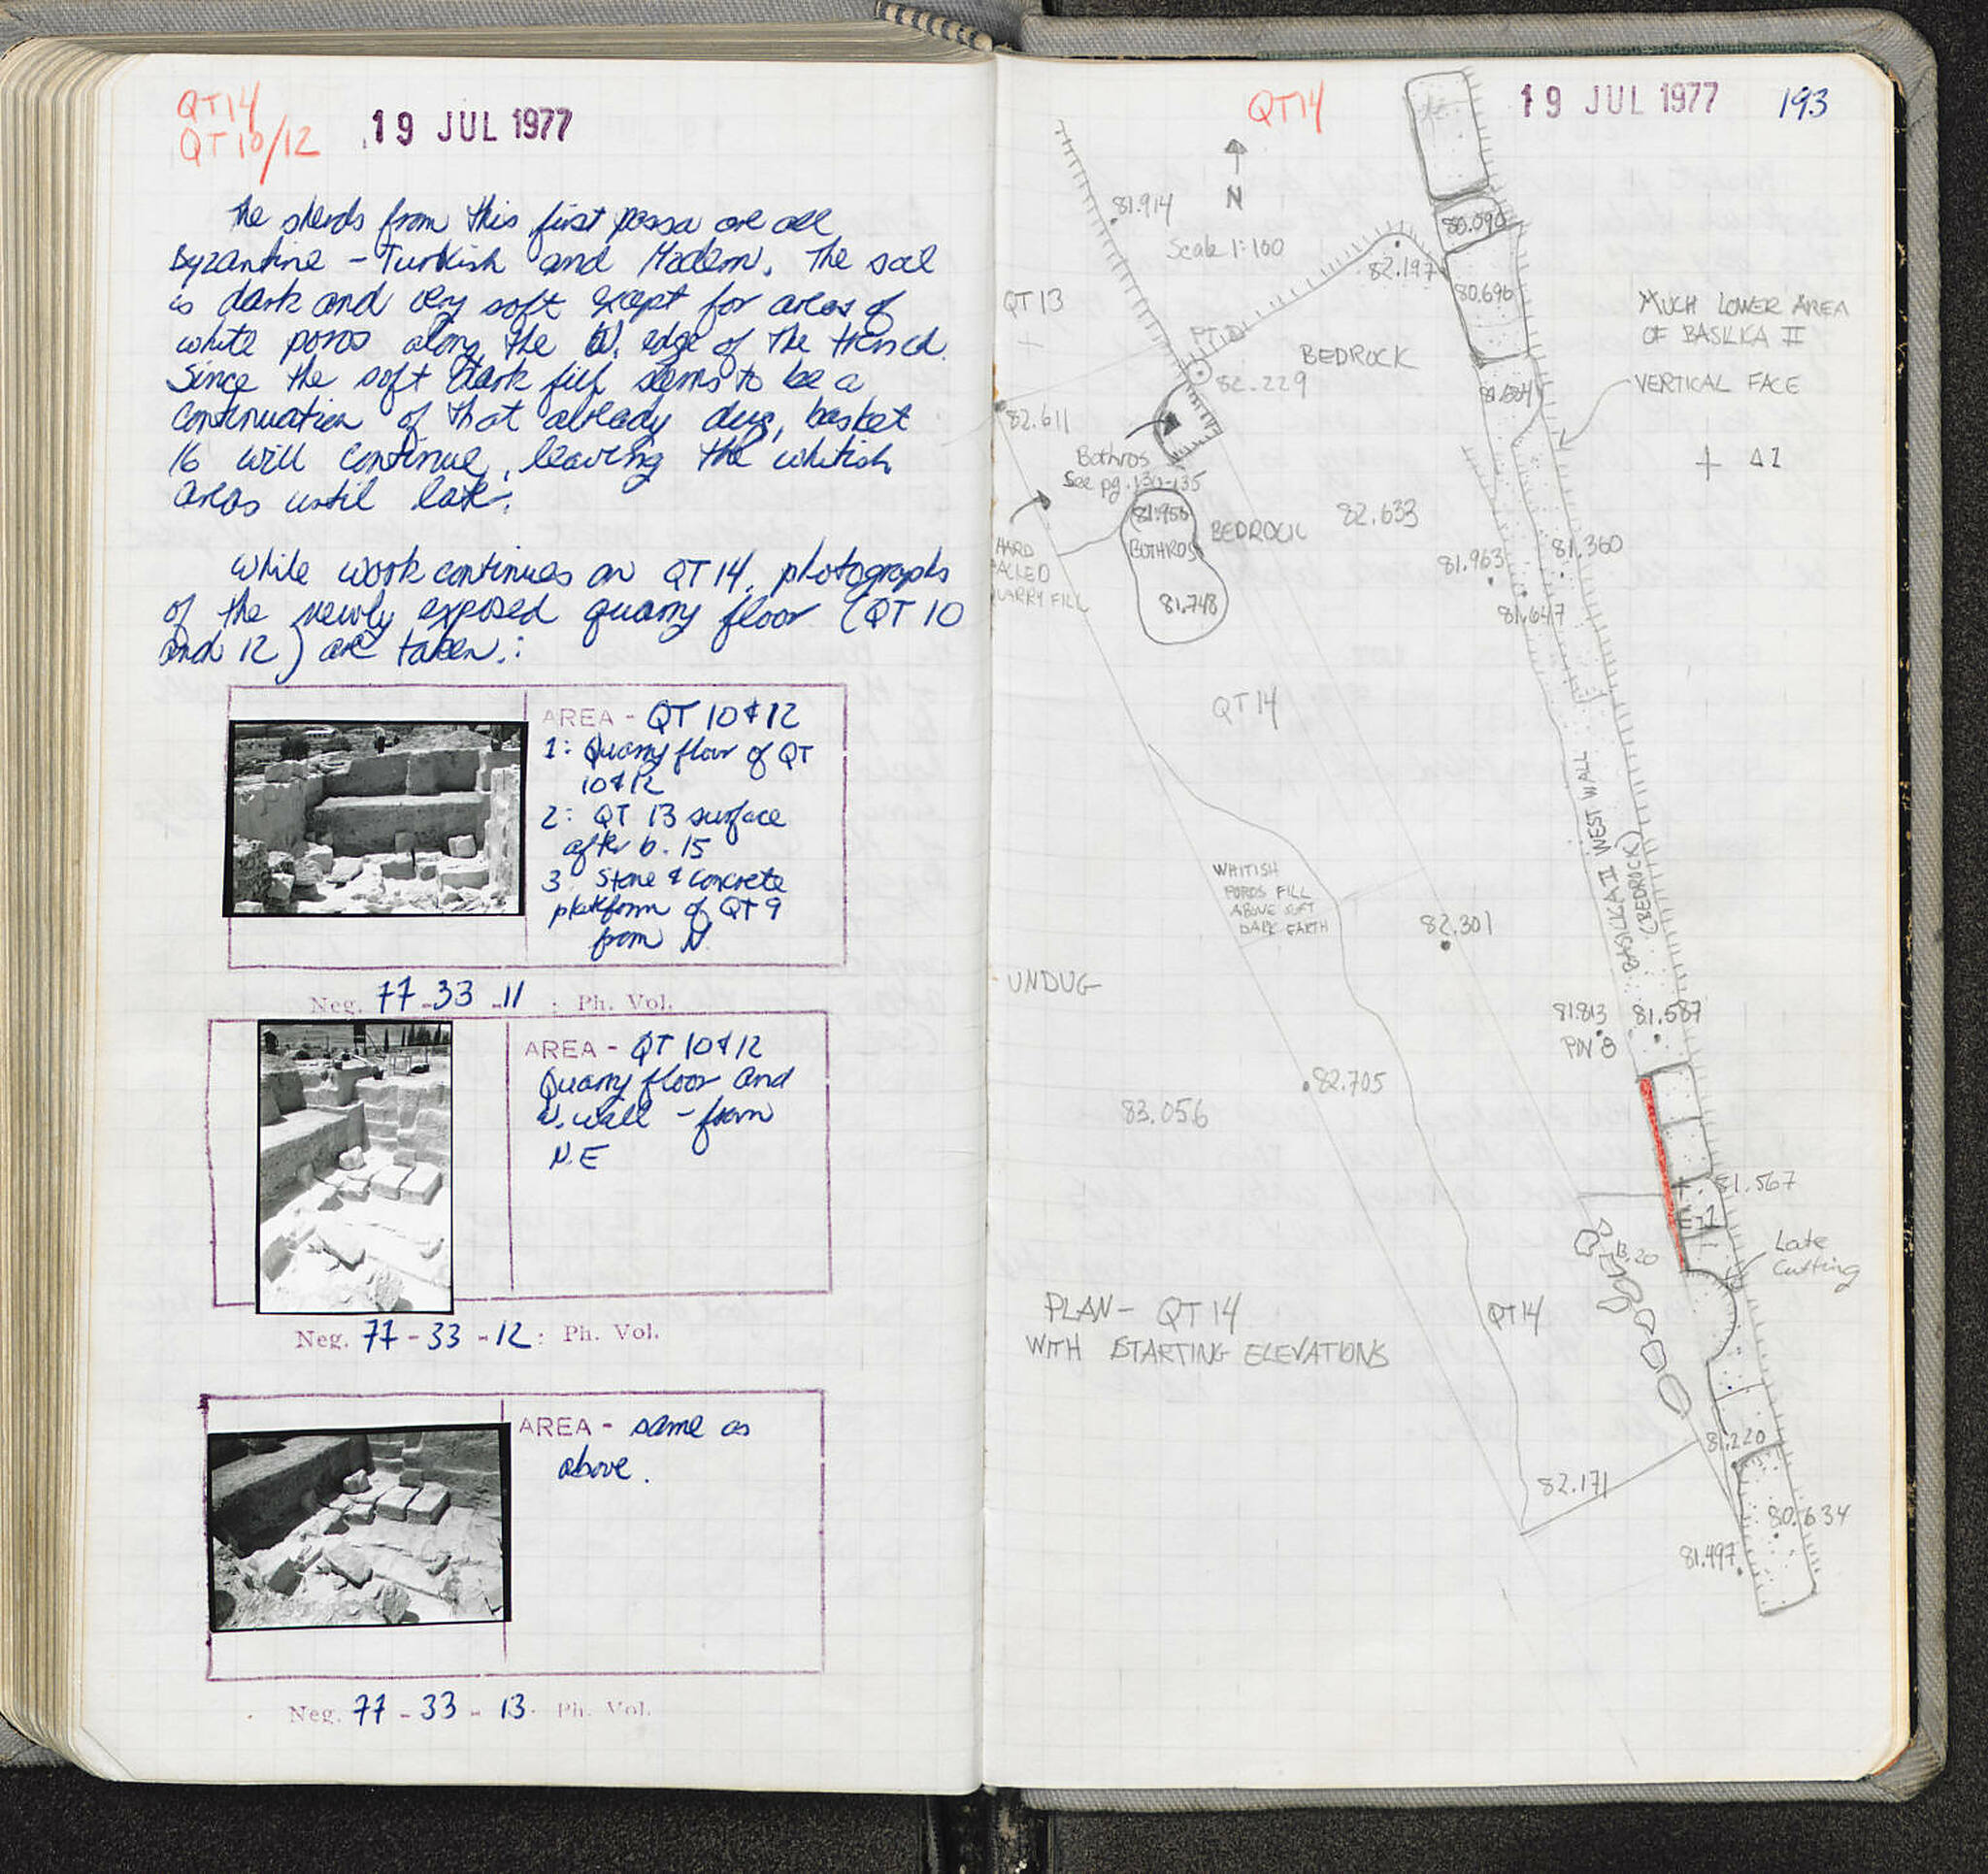 QT14
QT10/12
19 JUL 1977
The sherds from this first passa are all
Byzantine - Turkish and Modern. The soil
is dark and very soft except for areas of
white poros along the W. edge of the trench.
Since the soft dark fill seems to be a
continuation of that already dug, basket
16 will continue, leaving the whitish
areas until later.
While work continues on QT 14, photographs
of the newly exposed quarry floor (QT 10
and 12) are taken.:
AREA - QT 10 & 12
1: Quarry floor of QT
10 & 12
2: QT 13 surface
after b. 15
3: Stone & Concrete
platform of QT 9
from N.
Neg. 77-33-11 : Ph. Vol.
AREA - QT 10 & 12
Quarry floor and
W. wall - from
N.E
Neg. 77-33-12 : Ph. Vol.
AREA - same as
above.
Neg. 77-33-13. Ph. Vol.
QT14
19 JUL 1977
193
81.914
N
Scale 1:100
80.090
82.197
80.696
QT 13
PT. D
82.229
BEDROCK
MUCH LOWER AREA
OF BASILKA II
VERTICAL FACE
82.611
Bothros
See pg. 130-135
+ Δ1
81.956
BOTHROS
81.748
BEDROCK
82.633
HARD
PACKED
QUARRY FILL
81.963
81.360
81.647
QT 14
BASILKA II WEST WALL
(BEDROCK)
WHITISH
POROS FILL
ABOVE SOFT
DARK EARTH
82.301
UNDUG
81.813
PIN 8
81.587
82.705
83.056
81.567
B.20
Late
Cutting
PLAN - QT 14
WITH STARTING ELEVATIONS
QT 14
81.220
82.171
80.634
81.497